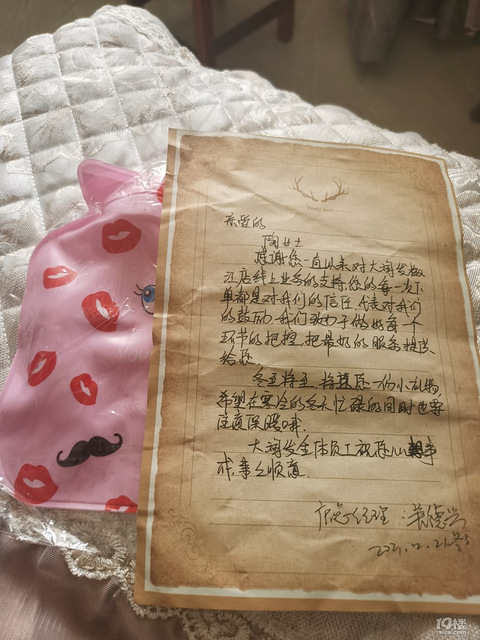 亲爱的
陶女士
感谢您一直以来对大润发
江店线上业务的支持,您的每一次下
单都是对我们的信任,代表对我们
的鼓励,我们致力于做好每一个
环节的把控,把最好的服务提供
给您
冬至将至,特送您一份小礼物,
希望在寒冷的冬天忙碌的同时也要
注意保暖哦.
大润发全体员工祝您心想事
成,事事顺意.
店总经理:
2021.12.21
19楼